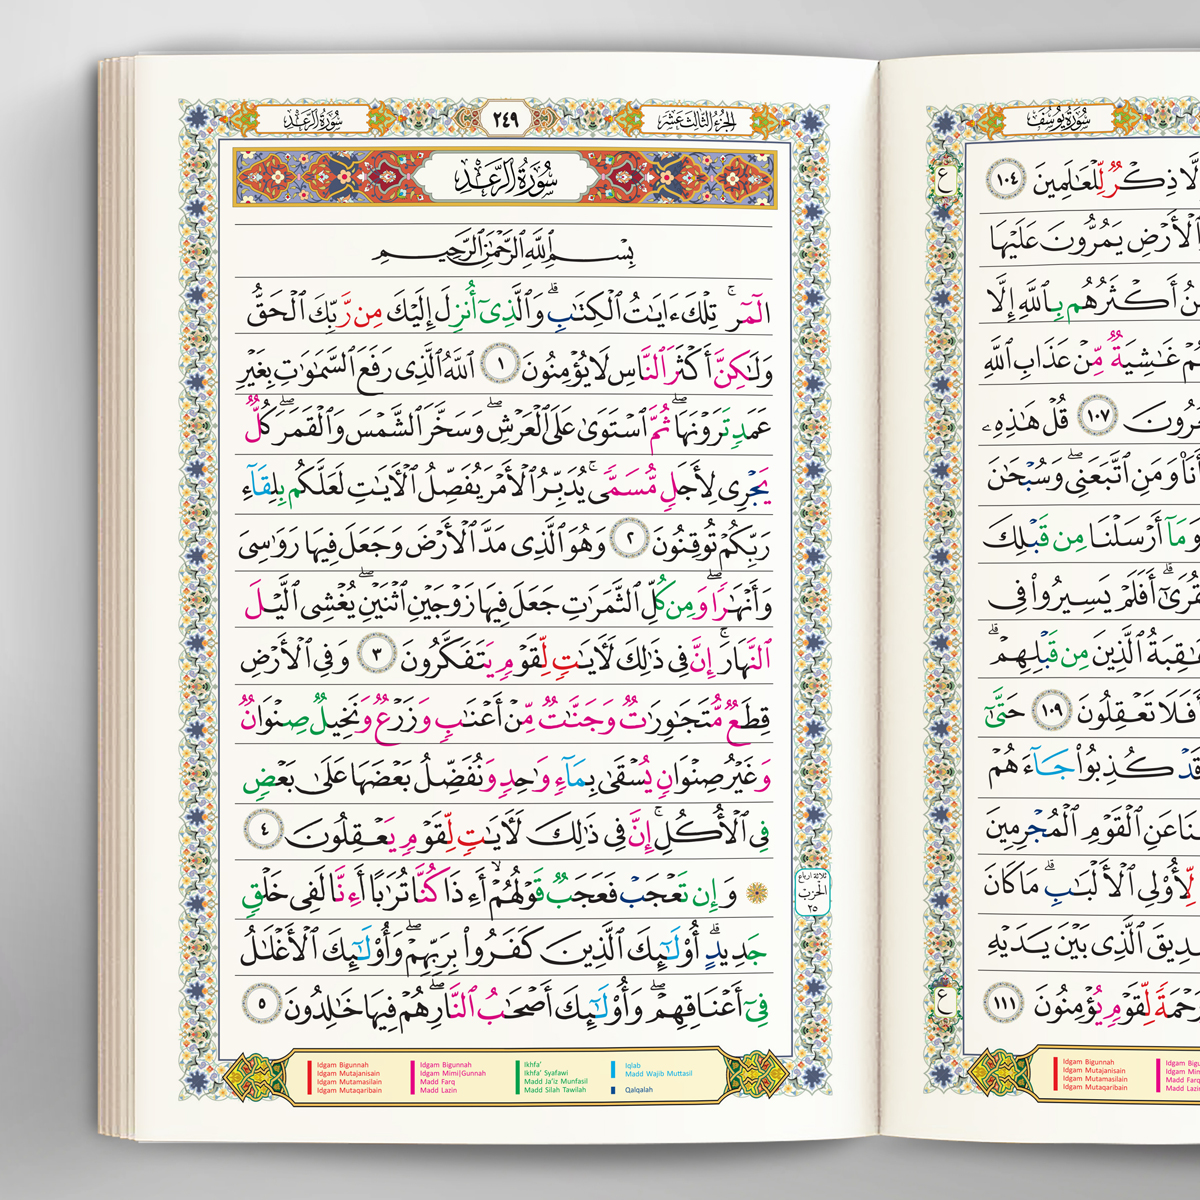 سُورَةُ يُوسُفَ
ع
ذِكْرٌ لِّلْعَٰلَمِينَ ١٠٤
ٱلْأَرْضِ يَمُرُّونَ عَلَيْهَا
أَكْثَرُهُم بِٱللَّهِ إِلَّا
غَٰشِيَةٌ مِّنْ عَذَابِ ٱللَّهِ
١٠٧ قُلْ هَٰذِهِۦ
أَنَا۠ وَمَنِ ٱتَّبَعَنِى ۖ وَسُبْحَٰنَ
وَمَآ أَرْسَلْنَا مِن قَبْلِكَ
أَفَلَمْ يَسِيرُوا۟ فِى
ٱلَّذِينَ مِن قَبْلِهِمْ ۗ
أَفَلَا تَعْقِلُونَ ١٠٩ حَتَّىٰٓ
قَدْ كُذِبُوا۟ جَآءَهُمْ
عَنِ ٱلْقَوْمِ ٱلْمُجْرِمِينَ
لِّأُو۟لِى ٱلْأَلْبَٰبِ ۗ مَا كَانَ
ٱلَّذِى بَيْنَ يَدَيْهِ
لِّقَوْمٍ يُؤْمِنُونَ ١١١
ع
Idgam Bigunnah
Idgam Mutajanisain
Idgam Mutamasilain
Idgam Mutaqaribain
الجُزْءُ الثَّالِثَ عَشَرَ
٢٤٩
سُورَةُ الرَّعْدِ
سُورَةُ الرَّعْدِ
بِسْمِ ٱللَّهِ ٱلرَّحْمَٰنِ ٱلرَّحِيمِ
الٓمٓر ۚ تِلْكَ ءَايَٰتُ ٱلْكِتَٰبِ ۗ وَٱلَّذِىٓ أُنزِلَ إِلَيْكَ مِن رَّبِّكَ ٱلْحَقُّ
وَلَٰكِنَّ أَكْثَرَ ٱلنَّاسِ لَا يُؤْمِنُونَ ١ ٱللَّهُ ٱلَّذِى رَفَعَ ٱلسَّمَٰوَٰتِ بِغَيْرِ
عَمَدٍ تَرَوْنَهَا ۖ ثُمَّ ٱسْتَوَىٰ عَلَى ٱلْعَرْشِ ۖ وَسَخَّرَ ٱلشَّمْسَ وَٱلْقَمَرَ ۖ كُلٌّ
يَجْرِى لِأَجَلٍ مُّسَمًّى ۚ يُدَبِّرُ ٱلْأَمْرَ يُفَصِّلُ ٱلْءَايَٰتِ لَعَلَّكُم بِلِقَآءِ
رَبِّكُمْ تُوقِنُونَ ٢ وَهُوَ ٱلَّذِى مَدَّ ٱلْأَرْضَ وَجَعَلَ فِيهَا رَوَٰسِىَ
وَأَنْهَٰرًا ۖ وَمِن كُلِّ ٱلثَّمَرَٰتِ جَعَلَ فِيهَا زَوْجَيْنِ ٱثْنَيْنِ ۖ يُغْشِى ٱلَّيْلَ
ٱلنَّهَارَ ۚ إِنَّ فِى ذَٰلِكَ لَءَايَٰتٍ لِّقَوْمٍ يَتَفَكَّرُونَ ٣ وَفِى ٱلْأَرْضِ
قِطَعٌ مُّتَجَٰوِرَٰتٌ وَجَنَّٰتٌ مِّنْ أَعْنَٰبٍ وَزَرْعٌ وَنَخِيلٌ صِنْوَانٌ
وَغَيْرُ صِنْوَانٍ يُسْقَىٰ بِمَآءٍ وَٰحِدٍ وَنُفَضِّلُ بَعْضَهَا عَلَىٰ بَعْضٍ
فِى ٱلْأُكُلِ ۚ إِنَّ فِى ذَٰلِكَ لَءَايَٰتٍ لِّقَوْمٍ يَعْقِلُونَ ٤
وَإِن تَعْجَبْ فَعَجَبٌ قَوْلُهُمْ أَءِذَا كُنَّا تُرَٰبًا أَءِنَّا لَفِى خَلْقٍ
جَدِيدٍ ۗ أُو۟لَٰٓئِكَ ٱلَّذِينَ كَفَرُوا۟ بِرَبِّهِمْ ۖ وَأُو۟لَٰٓئِكَ ٱلْأَغْلَٰلُ
فِىٓ أَعْنَاقِهِمْ ۖ وَأُو۟لَٰٓئِكَ أَصْحَٰبُ ٱلنَّارِ ۖ هُمْ فِيهَا خَٰلِدُونَ ٥
ثلاثة ارباع
الحزب
٢٥
Idgam Bigunnah
Idgam Mutajanisain
Idgam Mutamasilain
Idgam Mutaqaribain
Idgam Bigunnah
Idgam Mimi|Gunnah
Madd Farq
Madd Lazin
Ikhfa'
Ikhfa' Syafawi
Madd Ja'iz Munfasil
Madd Silah Tawilah
Iqlab
Madd Wajib Muttasil
Qalqalah